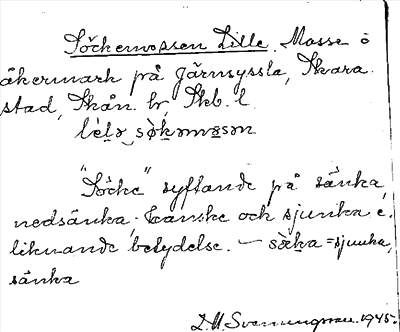 Söckemossen Lille. Mosse ö
åkermark på Järnsyssla, Skara
stad, Skån. hr, Skb. l.
lélə sø̀kəmåsən
"Söcke" syftande på sänka,
nedsänka; kanske och sjunka e.
liknande betydelse. — sø̀ka = sjunka,
sänka
Svenningsson. 1945.